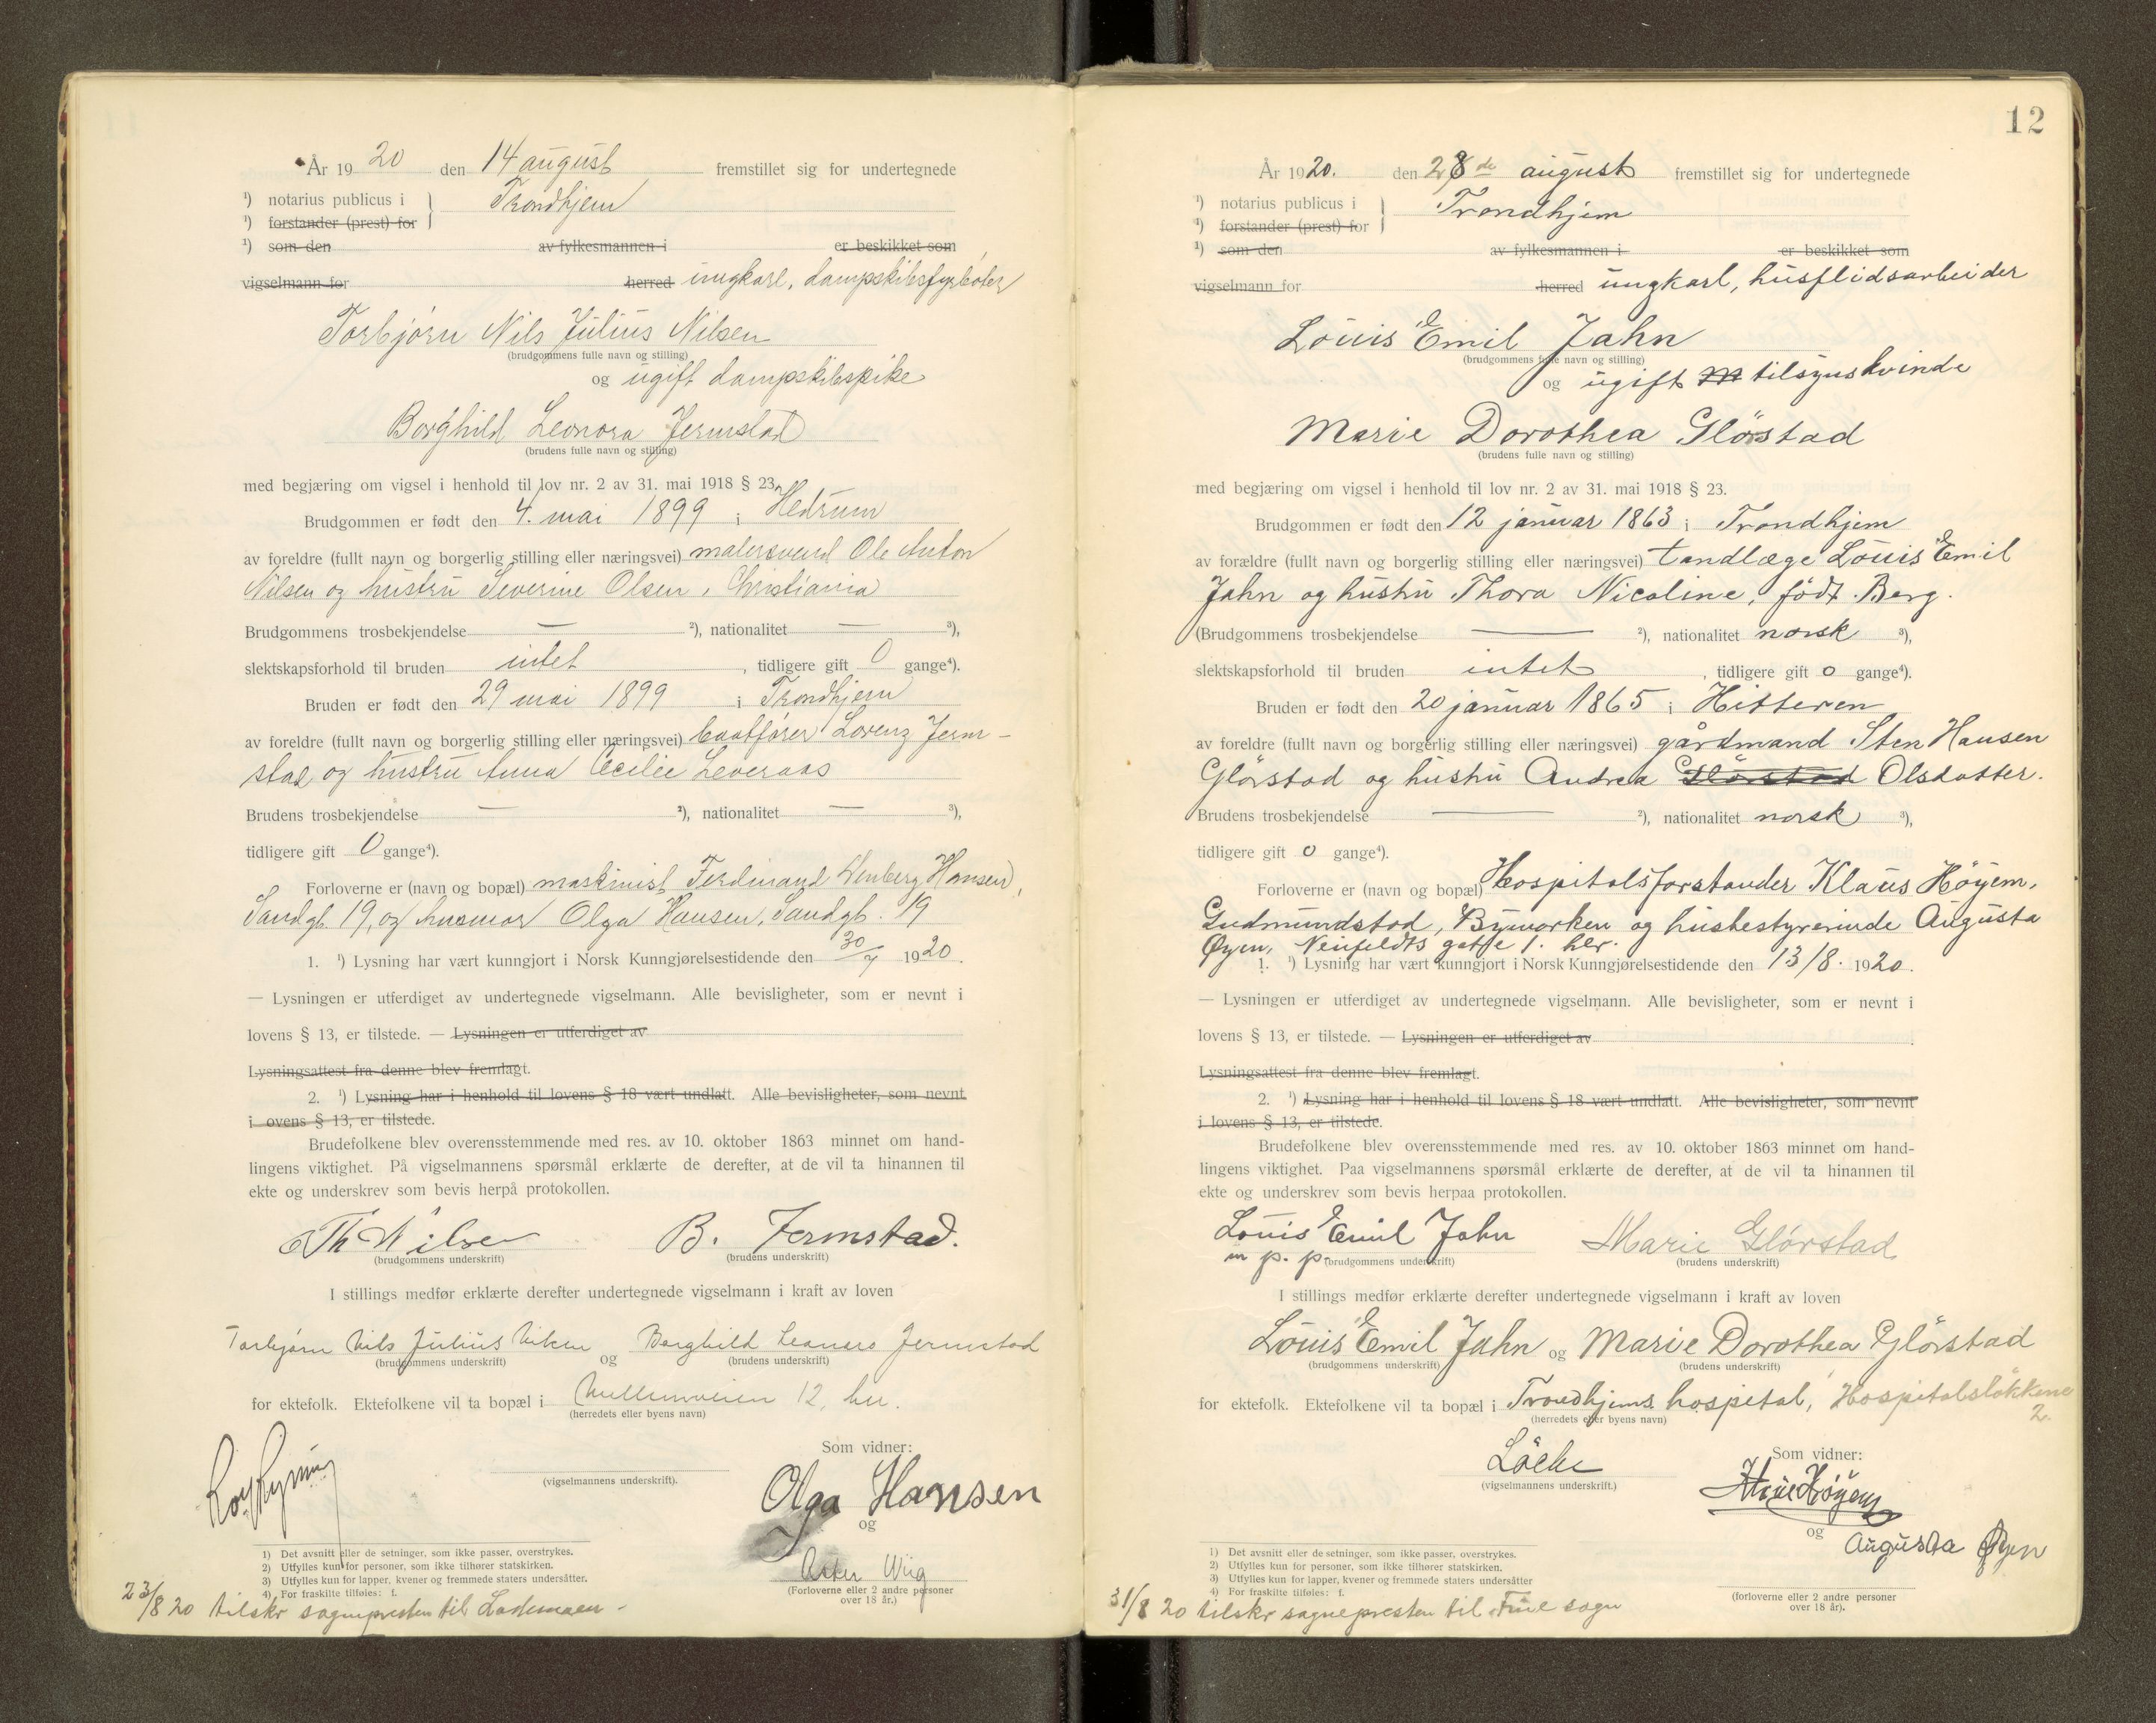 År 1920 den 14 august fremstillet sig for undertegnede
¹) notarius publicus i } Trondhjem
¹) forstander (prest) for
¹) som den av fylkesmannen i er beskikket som
vigselmann for herred ungkarl, dampskibsfyrbøter
Torbjørn Nils Julius Nilsen
(brudgommens fulle navn og stilling)
og ugift dampskibspike
Borghild Leonora Jermstad
(brudens fulle navn og stilling)
med begjæring om vigsel i henhold til lov nr. 2 av 31. mai 1918 § 23.
Brudgommen er født den 4. mai 1899 i Hedrum
av foreldre (fullt navn og borgerlig stilling eller næringsvei) malersvend Ole Anton
Nilsen og hustru Severine Olsen, Christiania
Brudgommens trosbekjendelse — ²), nationalitet — ³),
slektskapsforhold til bruden intet, tidligere gift 0 gange⁴).
Bruden er født den 29 mai 1899 i Trondhjem
av foreldre (fullt navn og borgerlig stilling eller næringsvei) baatfører Lorenz Jerm-
stad og hustru Anna Cecilie Leveraas
Brudens trosbekjendelse — ²), nationalitet — ³),
tidligere gift 0 gange⁴).
Forloverne er (navn og bopæl) maskinist Ferdinand Wenberg Hansen,
Sandgt. 19, og husmor Olga Hansen, Sandgt. 19
1. ¹) Lysning har vært kunngjort i Norsk Kunngjørelsestidende den 30/7 1920.
— Lysningen er utferdiget av undertegnede vigselmann. Alle bevisligheter, som er nevnt i
lovens § 13, er tilstede. — Lysningen er utferdiget av
Lysningsattest fra denne blev fremlagt.
2. ¹) Lysning har i henhold til lovens § 18 vært undlatt. Alle bevisligheter, som nevnt
i ovens § 13, er tilstede.
Brudefolkene blev overensstemmende med res. av 10. oktober 1863 minnet om hand-
lingens viktighet. På vigselmannens spørsmål erklærte de derefter, at de vil ta hinannen til
ekte og underskrev som bevis herpå protokollen.
Th Nilsen B. Jermstad.
(brudgommens underskrift) (brudens underskrift)
I stillings medfør erklærte derefter undertegnede vigselmann i kraft av loven
Torbjørn Nils Julius Nilsen og Borghild Leonora Jermstad
(brudgommens underskrift) (brudens underskrift)
for ektefolk. Ektefolkene vil ta bopæl i 12, her.
(herredets eller byens navn)
Som vidner:
(vigselmannens underskrift).
Olga Hansen
og
Wiig
(Forloverne eller 2 andre personer
over 18 år.)
1) Det avsnitt eller de setninger, som ikke passer, overstrykes.
2) Utfylles kun for personer, som ikke tilhører statskirken.
3) Utfylles kun for lapper, kvener og fremmede staters undersåtter.
4) For fraskilte tilføies: f.
23/8 20 tilskr sognepresten til Lademoen
12
År 1920. den 28de august fremstillet sig for undertegnede
¹) notarius publicus i } Trondhjem
¹) forstander (prest) for
¹) som den av fylkesmannen i er beskikket som
vigselmann for herred ungkarl, husflidsarbeider
Louis Emil Jahn
(brudgommens fulle navn og stilling)
og ugift tilsynskvinde
Marie Dorothea Glörstad
(brudens fulle navn og stilling)
med begjæring om vigsel i henhold til lov nr. 2 av 31. mai 1918 § 23.
Brudgommen er født den 12 januar 1863 i Trondhjem
av forældre (fullt navn og borgerlig stilling eller næringsvei) tandlæge Louis Emil
Jahn og hustru Thora Nicoline, født Berg.
(Brudgommens trosbekjendelse — ²), nationalitet norsk ³),
slektskapsforhold til bruden intet, tidligere gift 0 gange⁴).
Bruden er født den 20 januar 1865 i Hitteren
av foreldre (fullt navn og borgerlig stilling eller næringsvei) gårdmand Sten Hansen
Glörstad og hustru Andrea Glörstad Olsdatter.
Brudens trosbekjendelse — ²), nationalitet norsk ³),
tidligere gift 0 gange⁴).
Forloverne er (navn og bopæl) Hospitalsforstander Klaus Höyem,
Gudmundstad, Bymarken og husbestyrerinde Augusta
Øyen, Neufeldts gate 1. her.
1. ¹) Lysning har vært kunngjort i Norsk Kunngjørelsestidende den 13/8. 1920.
— Lysningen er utferdiget av undertegnede vigselmann. Alle bevisligheter, som er nevnt i
lovens § 13, er tilstede. — Lysningen er utferdiget av
Lysningsattest fra denne blev fremlagt.
2. ¹) Lysning har i henhold til lovens § 18 vært undlatt. Alle bevisligheter, som nevnt
i lovens § 13, er tilstede.
Brudefolkene blev overensstemmende med res. av 10. oktober 1863 minnet om hand-
lingens viktighet. Paa vigselmannens spørsmål erklærte de derefter, at de vil ta hinannen til
ekte og underskrev som bevis herpaa protokollen.
Louis Emil Jahn Marie Glörstad
m. p. p. (brudgommens underskrift) (brudens underskrift)
I stillings medfør erklærte derefter undertegnede vigselmann i kraft av loven
Louis Emil Jahn og Marie Dorothea Glörstad
(brudgommens underskrift) (brudens underskrift)
for ektefolk. Ektefolkene vil ta bopæl i Trondhjems hospital, Hospitalsløkkene
2.
(herredets eller byens navn)
Som vidner:
(vigselmannens underskrift.)
Høyem
og
Augusta Øyen
(forloverne eller 2 andre personer
over 18 år).
1) Det avsnitt eller de setninger, som ikke passer, overstrykes.
2) Utfylles kun for personer, som ikke tilhører statskirken.
3) Utfylles kun for lapper, kvener og fremmede staters undersåtter
4) For fraskilte tilføies: f.
31/8 20 tilskr sognepresten til Frue sogn